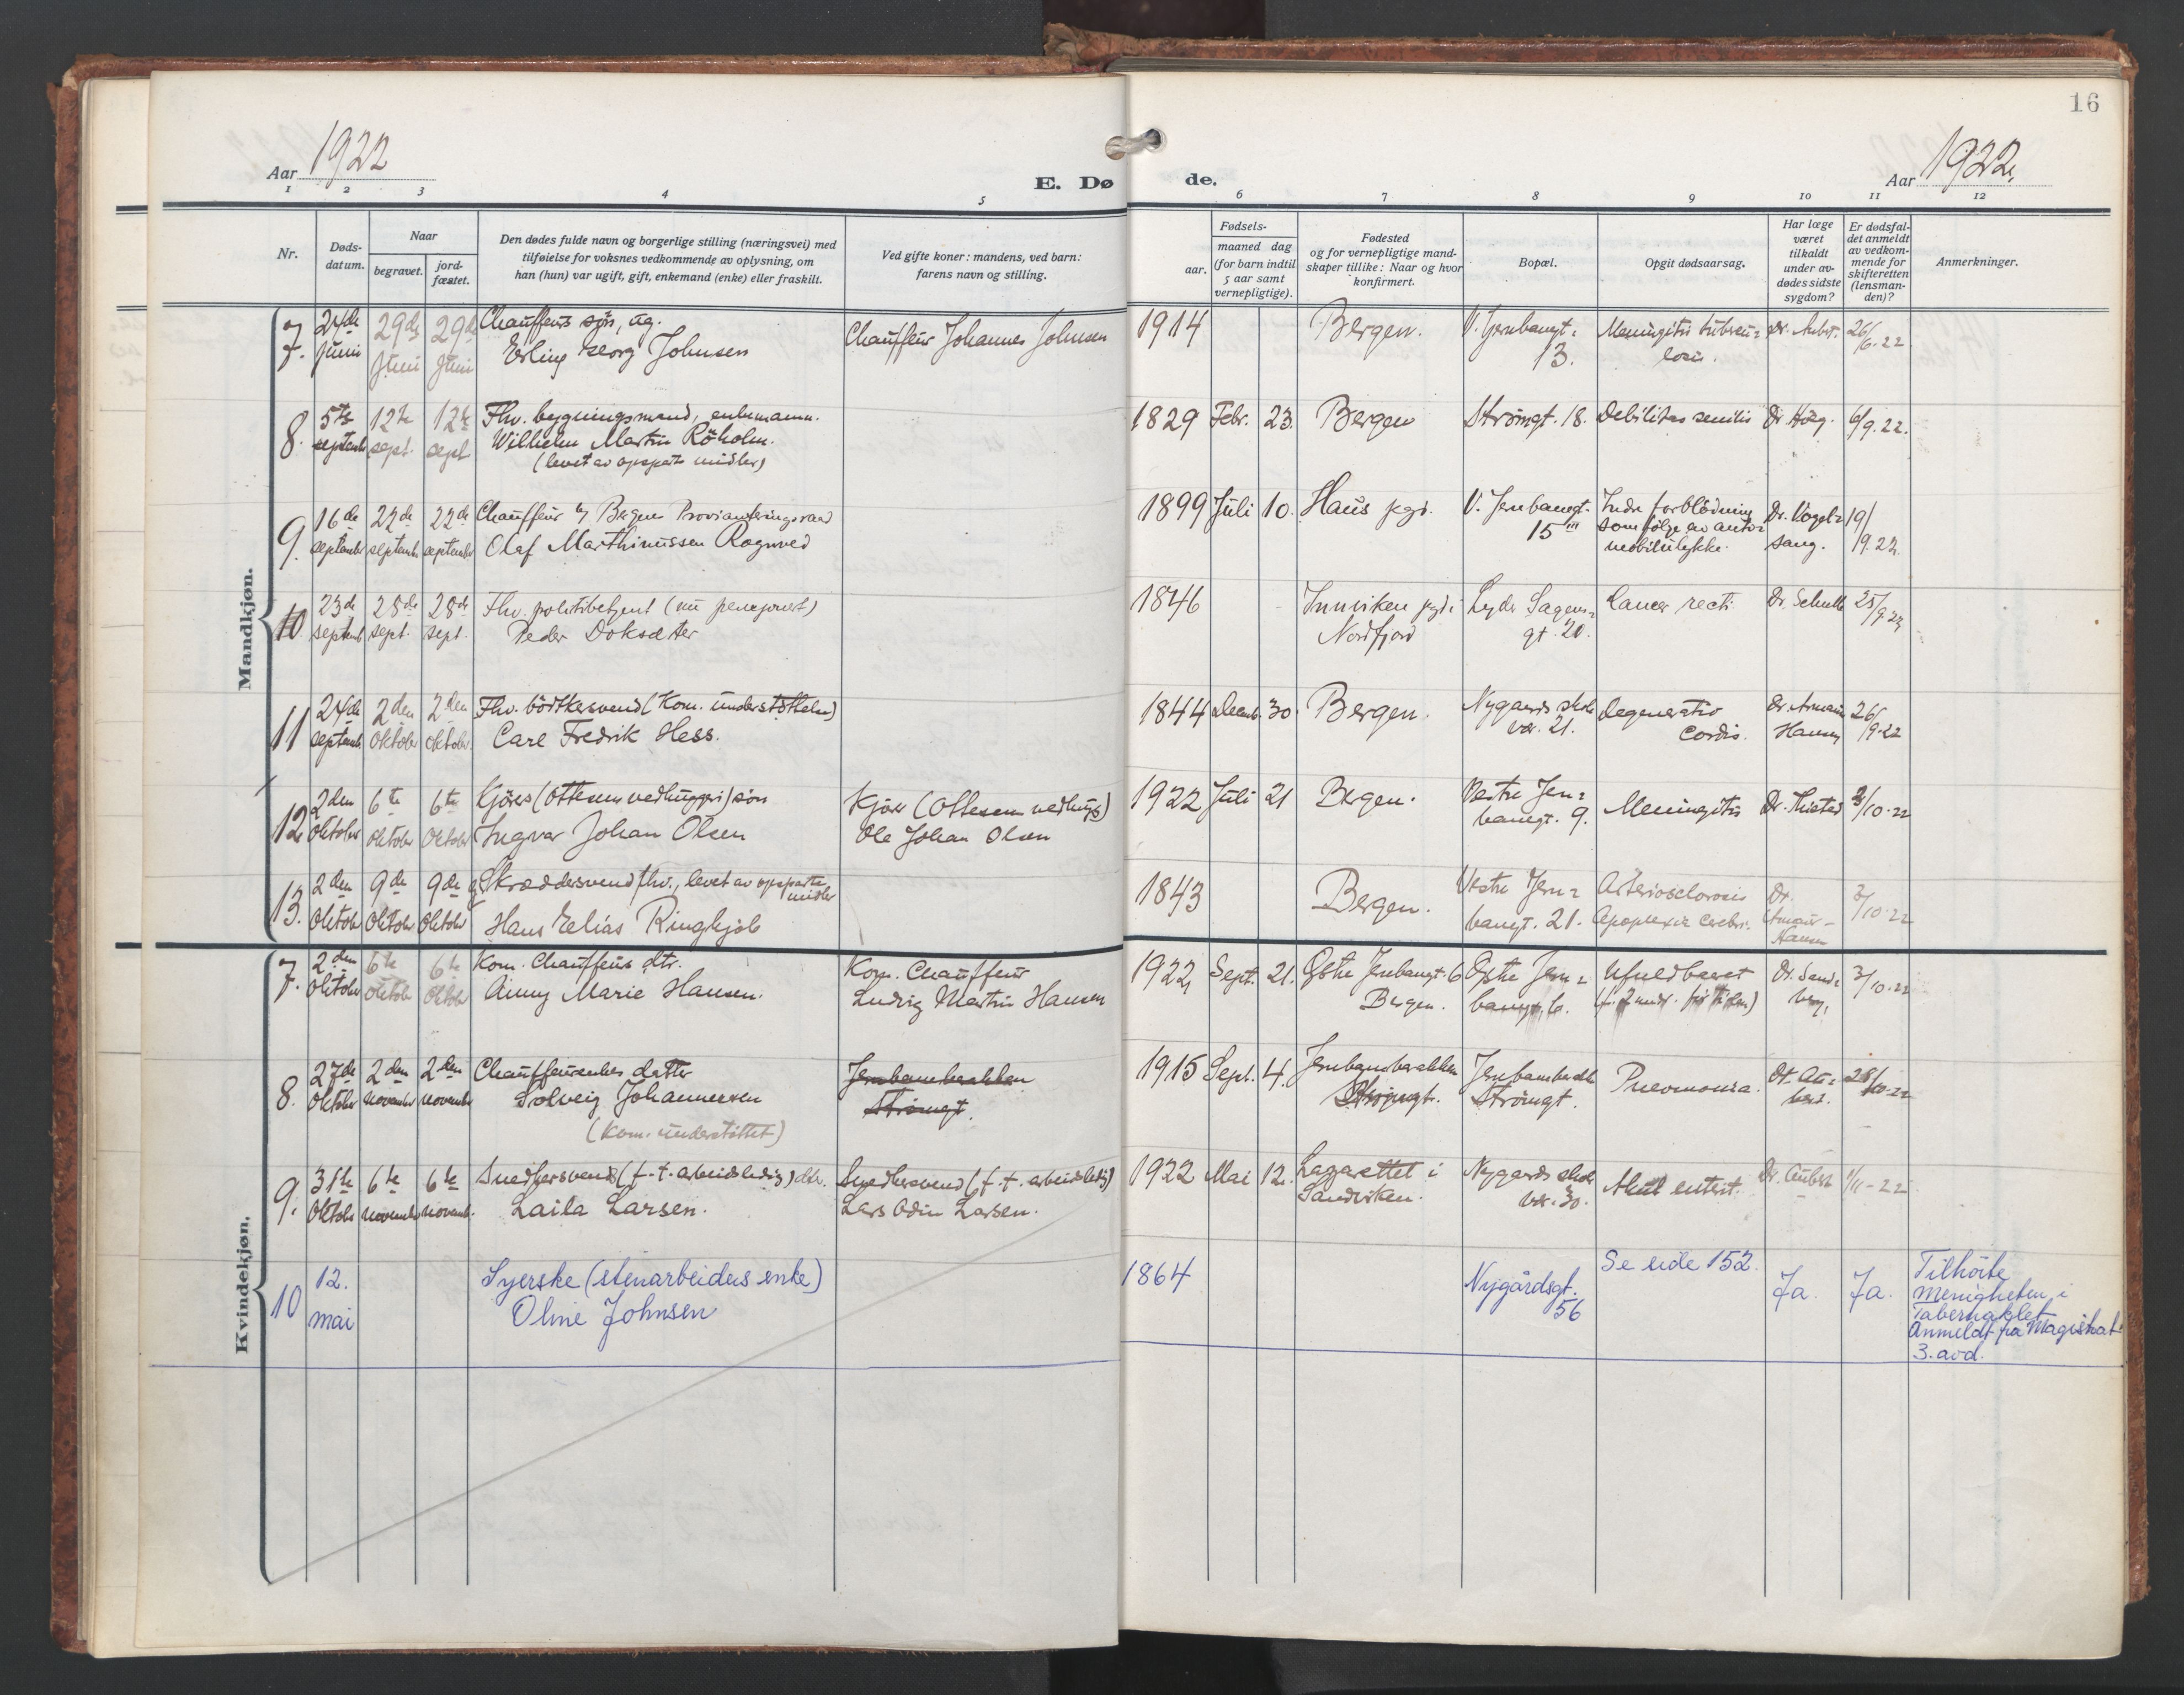 16
Aar 1922
E. Dø
de.
Aar 1922.
1 2 3 4 5 6 7 8 9 10 11 12
Nr.
Døds-
datum.
Naar
begravet.
jord-
fæstet.
Den dødes fulde navn og borgerlige stilling (næringsvei) med
tilføielse for voksnes vedkommende av oplysning, om
han (hun) var ugift, gift, enkemand (enke) eller fraskilt.
Ved gifte koner: mandens, ved barn:
farens navn og stilling.
Fødsels-
aar.
maaned dag
(for barn indtil
5 aar samt
vernepligtige).
Fødested
og for vernepligtige mand-
skaper tillike: Naar og hvor
konfirmert.
Bopæl.
Opgit dødsaarsag.
Har læge
været
tilkaldt
under av-
dødes sidste
sygdom?
Er dødsfal-
det anmeldt
av vedkom-
mende for
skifteretten
(lensman-
den)?
Anmerkninger.
Mandkjøn.
7. 24de Juni 29de Juni 29de Juni
Chauffeurs søn, ug.
Erling Georg Johnsen
Chauffeur Johannes Johnsen
1914 Bergen. V. Jernbanegt. 13.
Meningitis tubercu=
losis.
26/6-22
8. 5te septemb. 12te sept. 12te sept
Fhv. bygningsmand, enkemann.
Wilhelm Martin Röholm.
(levet av opsparte midler)
1829 Febr. 23. Bergen Strömgt. 18. Debilitas senilis Dr. Höeg. 6/9.22.
9. 16de september 22de september 22de september
Chauffeur v/ Bergens Provianteringsraad
Olaf Marthinussen Rognved
1899 Juli 10. Haus pgd. V. Jernbanegt. 15
Indre forblödning
som følge av auto=
mobilulykke.
Dr. Vogel=
sang.
19/9.22.
10. 23de septemb 28de sept. 28de sept.
Fhv. politibetjent (nu pensjonert)
Peder Doksæter
1846
Innviken pgd. i
Nordfjord
Lyder Sagens=
gt. 20.
Cancer recti Dr. Schulb 25/9.22
11 24de septemb. 2den oktober 2den oktober
Fhv. bödtkersvend (Kom. understøttelse)
Carl Fredrik Hess.
1844 Decemb. 30. Bergen.
Nygaards skole
vær. 21.
Degeneratio
cordis.
Dr. Armauer
Hansen
26/9-22
12. 2den oktober 6te oktober 6te oktober
Kjörers (Ottesens vedhuggeri) søn
Ingvar Johan Olsen
Kjörer (Ottesens vedhugg)
Ole Johan Olsen
1922 Juli 21 Bergen.
Vestre Jern=
banegt. 9.
Meningitis 3/10.22
13. 2den oktober 9de oktober 9de oktober
Skræddersvend fhv., levet av opsparte
midler
Hans Elias Ringkjöb
1843 Bergen.
Vestre Jern=
banegt. 21.
Arteriosclerosis
Apoplexia cerebri.
Dr.
Armauer-
Hansen
3/10-22
Kvindekjøn.
7. 2den oktober 6te oktober 6te oktober
Kom. Chauffeurs dtr.
Anny Marie Hansen.
Kom. Chauffeur
Ludvig Martin Hansen
1922 Sept. 21.
Østre Jernbanegt. 6
Bergen.
Østre Jern=
banegt. 6.
Ufuldbaaret
(f. 2 mndr. før tiden)
Dr. Sand=
berg.
3/10-22
8. 27de oktober 2den november 2den november
Chauffeurenkes datter
Solveig Johannessen
(Kom. understöttet)
Jernbanebarakken
Strömgt.
1915 Sept. 4.
Jernbanebarakken
Strömgt.
Jernbanebarakk
Strömgt.
Pneumonia.
Dr. Au=
bert.
28/10-22
9. 31te oktober 6te november 6te novemb.
Snedkersvends (f. t. arbeidsledig) dtr.
Laila Larsen.
Snedkersvend (f. t. arbeidsledig)
Lars Odin Larsen.
1922 Mai 12.
Lazarettet i
Sandviken.
Nygaards skole
vær. 30.
Akut enterit. Dr. Aubert 1/11-22
10 12. mai
Syerske (stenarbeiders enke)
Oline Johnsen
1864
Nygårdsgt.
56
Se side 152.
Ja. Ja.
Tilhörte
menigheten i
Tabernaklet
Anmeldt fra Magistrat
3. avd.